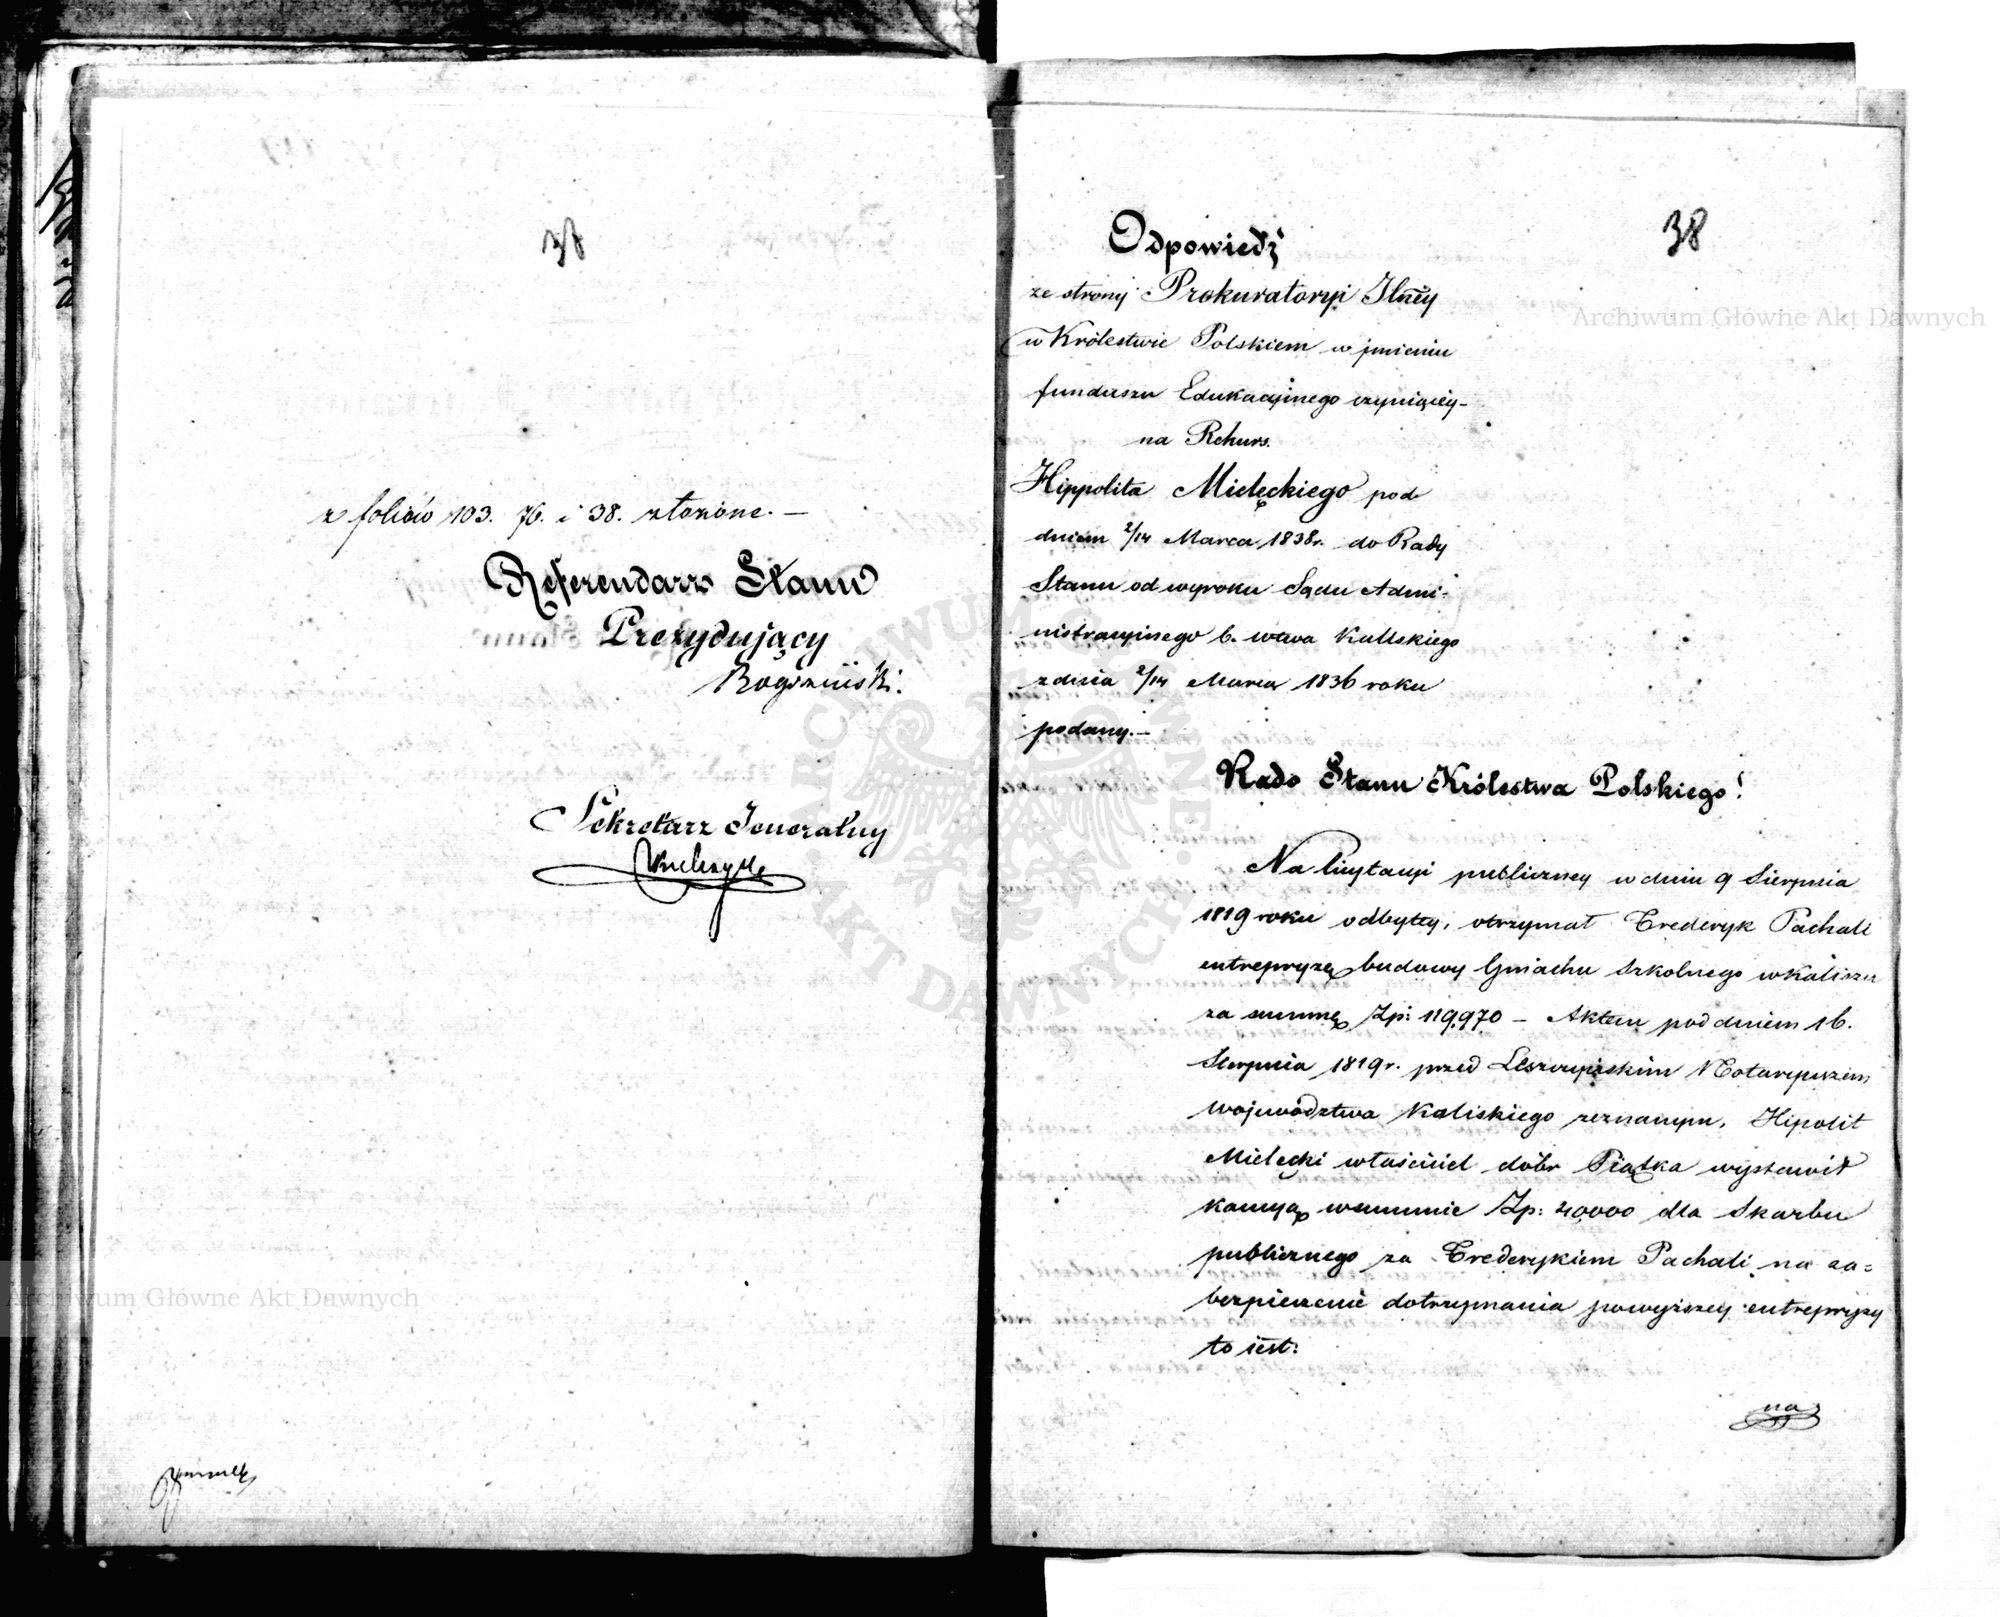 38
z foliów 103. 76. i 38. złożone. —
Referendarz Stanu
Prezydujący
Sekretarz Jeneralny
38
Odpowiedź
ze strony Prokuratoryi Jlney
w Królestwie Polskiem w jmieniu
funduszu Edukacyinego czyniącey
na Rekurs.
Hippolita Mielęckiego pod
dniem 2/14 Marca 1838r. do Rady
Stanu od wyroku Sądu Admi-
nistracyinego b. wtwa Kallskiego
z dnia 2/14 Marca 1836 roku
podany. —
Rado Stanu Królestwa Polskiego!
Na licytacyi publiczney w dniu 9 Sierpnia
1819 roku odbytey, otrzymał Frederyk Pachali
entrepryzę budowy Gmachu Szkolnego w Kaliszu
za summę Zp: 119,970 — Aktem pod dniem 16.
Sierpnia 1819r. przed Leszczyńskim Notaryuszem
Wojewodztwa Kaliskiego zeznanym, Hipolit
Mielęcki właściciel dóbr Piątka wystawił
kaucyą w summie Zp: 40000 dla Skarbu
publicznego za Frederykiem Pachali na za=
bezpieczenie dotrzymania powyższey entrepryzy
to iest:
na
Archiwum Główne Akt Dawnych
Archiwum Główne Akt Dawnych
ARCHIWUM GŁÓWNE AKT DAWNYCH